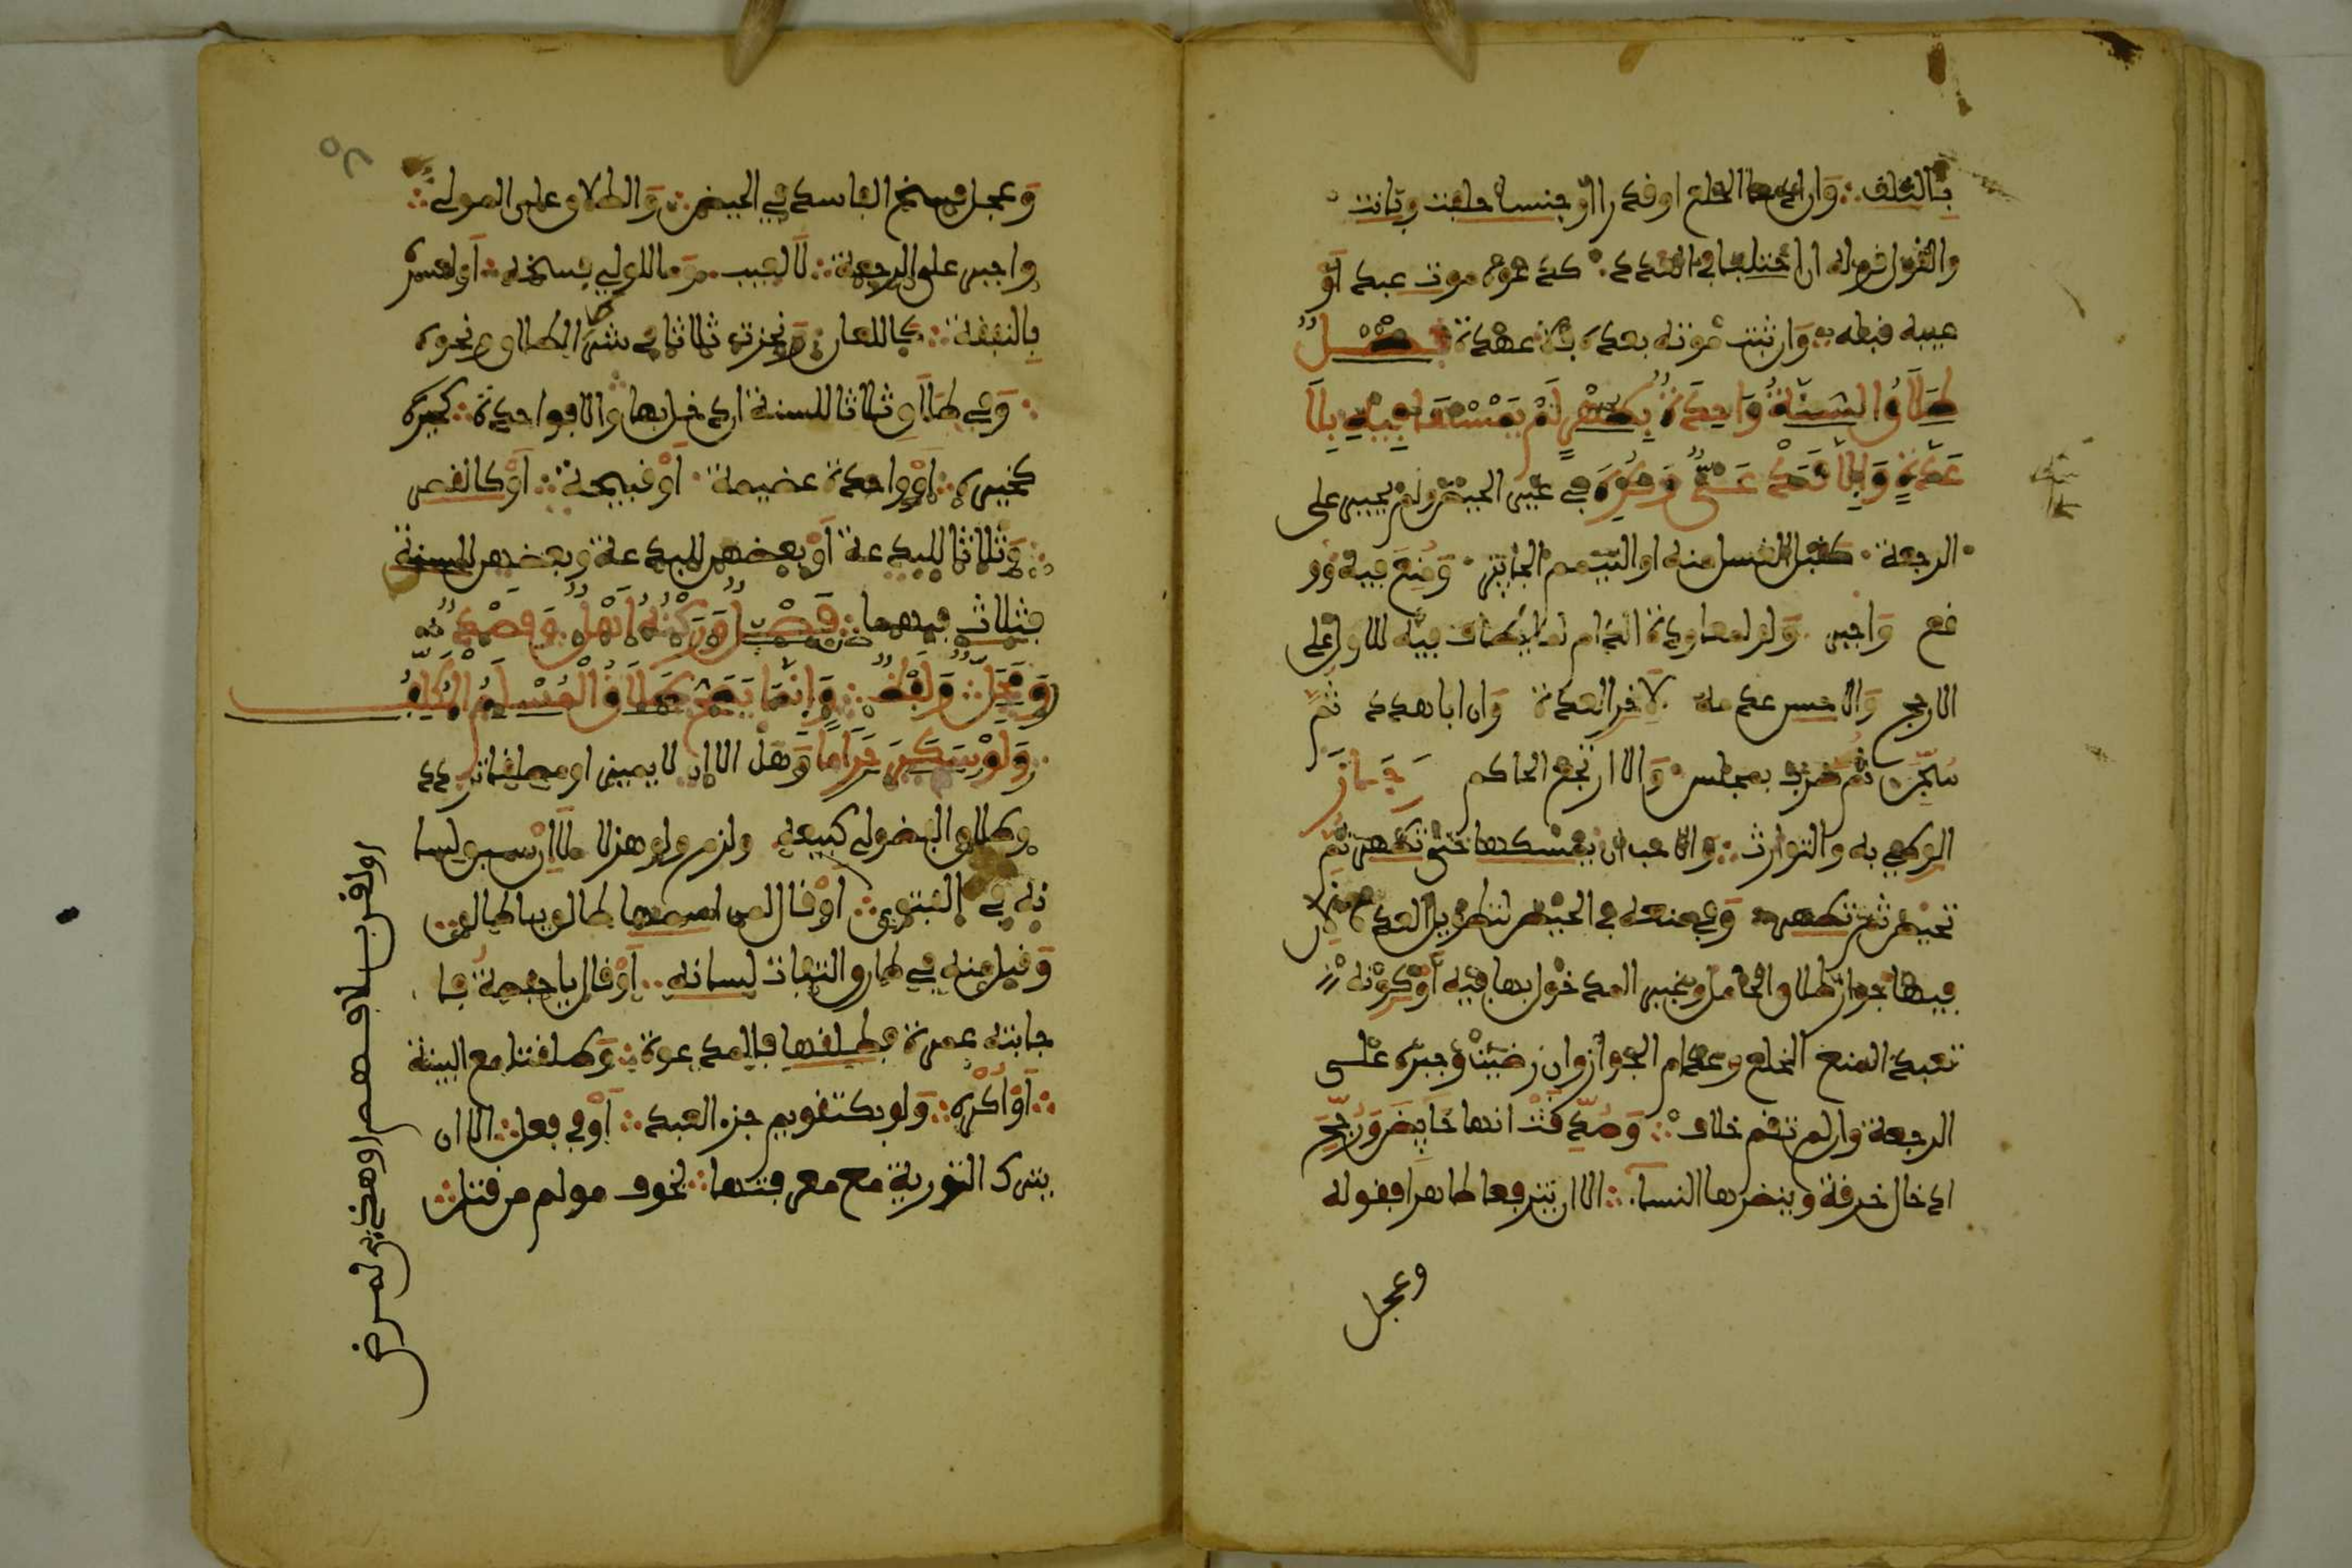 بالثلاث وان ادعى الخلع او قدرا او جنسا حلفت وبانت
والقول قوله ان اختلفا في العدد كدعواه موت عبد او
عيبه قبله وان ثبت موته بعده فلا عهدة فصل
طلاق السنة واحدة بطهر لم يمس فيه بلا
عدة والا فبدعي وكره في غير الحيض ولم يجبر على
الرجعة كقبل الغسل منه او التيمم الجائز ومنع فيه وو
قع واجبر ولو لمعاودة الدم لما يضاف فيه للاول على
الارجح والاحسن عدمه لاخر العدة وان ابى هدد ثم
سجن ثم ضرب بمجلس والا ارتجع الحاكم وجاز
الوطء به والتوارث والاحب ان يمسكها حتى تطهر ثم
تحيض ثم تطهر وفي منعه في الحيض لتطويل العدة لان
فيها جواز طلاق الحامل وغير المدخول بها فيه او كونه
تعبدا لمنع الخلع وعدم الجواز وان رضيت وجبره على
الرجعة وان لم تقم خلاف وصدقت انها حائض ورجح
ادخال خرقة وينظرها النسا الا ان يترافعا طاهرا فقوله
وعجل
وعجل فسخ الفاسد في الحيض والطلاق على المولى
واجبر على الرجعة لا لعيب وما للولي فسخه او لعسر
بالنفقة كاللعان ونجزت ثلاثا في شر الطلاق ونحوه
وفي طالق ثلاثا للسنة ان دخل بها والا فواحدة كخيره
كخيره او واحدة عضيمة او قبيحة او كالقصر
وثلاثا للبدعة او بعضهن للبدعة وبعضهن للسنة
فثلاث فيهما فصل وركنه اهل وقصد
ومحل ولفظ وانما يصح طلاق المسلم المكلف
ولو سكر حراما وهل الا ان لا يميز او مطلقا تردد
وطلاق الفضولي كبيعه ولزم ولو هزلا لا ان سبق لسا
نه في الفتوى او قال لمن اسمها طالق يا طالق
وقبل منه في طارق التفات لسانه او قال يا حفصة فا
جابته عمرة فطلقها فالمدعوة وطلقتا مع البينة
او اكره ولو بكتقويم جزء العبد او في فعل الا ان
يترك التورية مع معرفتها بخوف مولم من قتل
او لضرب
او هذي لمرض